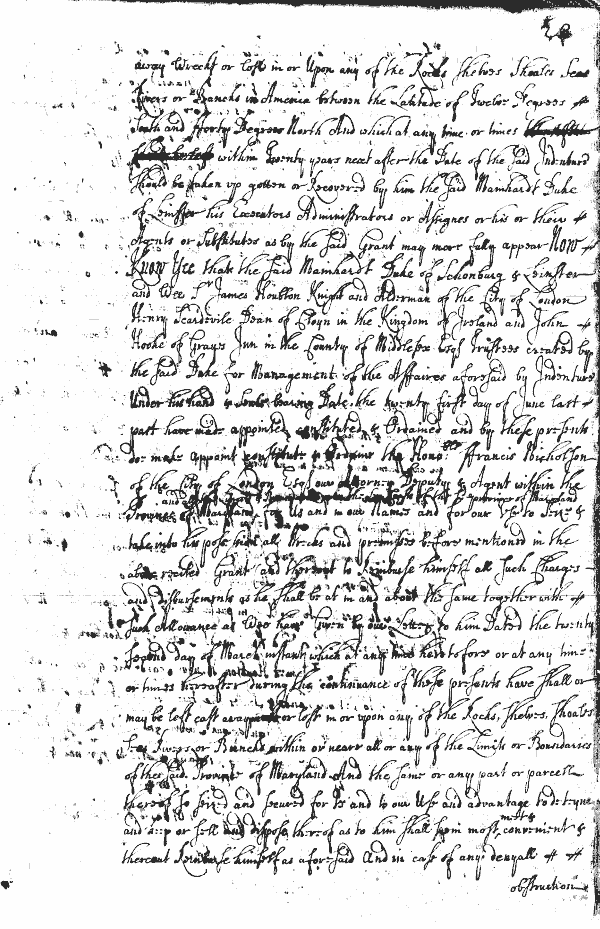 away Wreckt or lost in or Upon any of the Rocks Shelves Shoales Seas
Rivers or Banchs in America between the Latitude of Twelve Degrees
South and fforty Degrees North And which at any time or times
within Twenty years next after the Date of the said Indenture
should be taken up gotten or Recovered by him the said Mainhardt Duke
of Leinster his Executors Administrators or Assignes or his or their
Agents or Substitutes as by the said Grant may more fully appear Now
Know Yee that the said Mainhardt Duke of Schonburg & Leinster
and Wee Sr James Houblon Knight and Alderman of the City of London
Henry Scardevile Dean of Cloyn in the Kingdom of Ireland and John
Hooke of Grays Inn in the County of Middlesex Esqs Trustees created by
the said Duke for Management of the Affaires aforesaid by Indenture
Under his hand & Seale bearing Date the twenty first day of June last
past have made appointed constituted & Ordained and by these presents
doe make appoint constitute & Ordaine the Honoble ffrancis Nicholson
of the City of London Esq our Attorney Deputy & Agent within the
Province of Maryland for Us and in our Names and for our Use to Seize &
take into his possession all Wrecks and premises before mentioned in the
above recited Grant and thereout to Reimburse himselfe all such Charges
and Disbursements as he shall be at in and about the same together with
such Allowance as Wee have Given by our Letter to him Dated the twenty
second day of March instant which at any time heretofore or at any time
or times hereafter during the continuance of these presents have shall or
may be lost cast away or lost in or upon any of the Rocks, Shelves, Shoales
Seas Rivers or Banchs within or neare all or any of the Limits or Boundaries
of the said Province of Maryland And the same or any part or parcell
thereof so seized and secured for Us and to our Use and advantage to deteyne
and keep or sell and dispose thereof as to him shall seem most convenient &
thereout Reimburse himself as aforesaid And in case of any denyall
obstruction